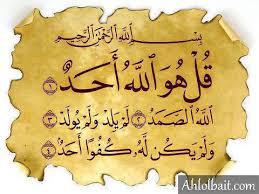 بِسْمِ اللَّهِ الرَّحْمَٰنِ الرَّحِيمِ
قُلْ هُوَ اللَّهُ أَحَدٌ ١
اللَّهُ الصَّمَدُ ٢ لَمْ يَلِدْ وَلَمْ يُولَدْ ٣
وَلَمْ يَكُن لَّهُ كُفُوًا أَحَدٌ ٤
Ahlolbait.com